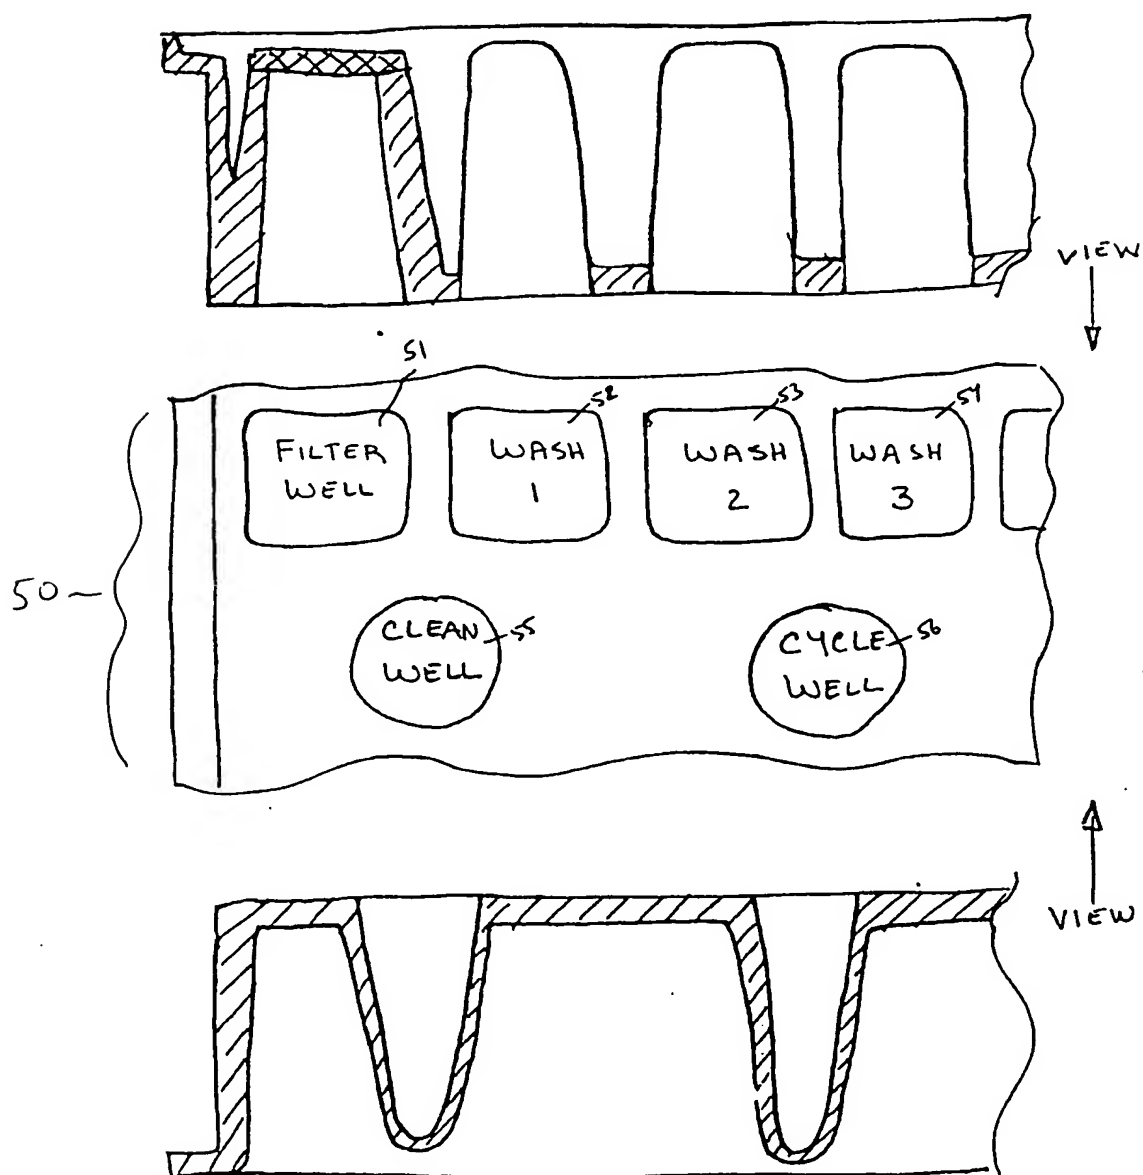 VIEW
51
52
53
54
FILTER
WELL
WASH
1
WASH
2
WASH
3
50
CLEAN
WELL
55
CYCLE
WELL
56
VIEW